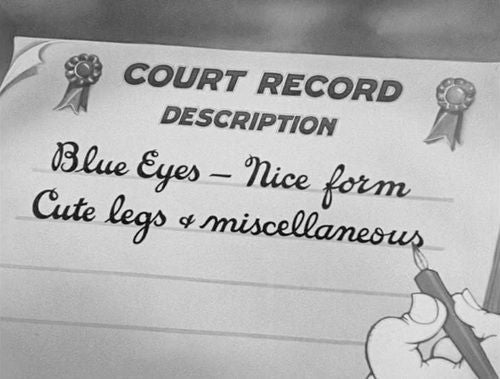 COURT RECORD
DESCRIPTION
Blue Eyes – Nice form
Cute legs & miscellaneous